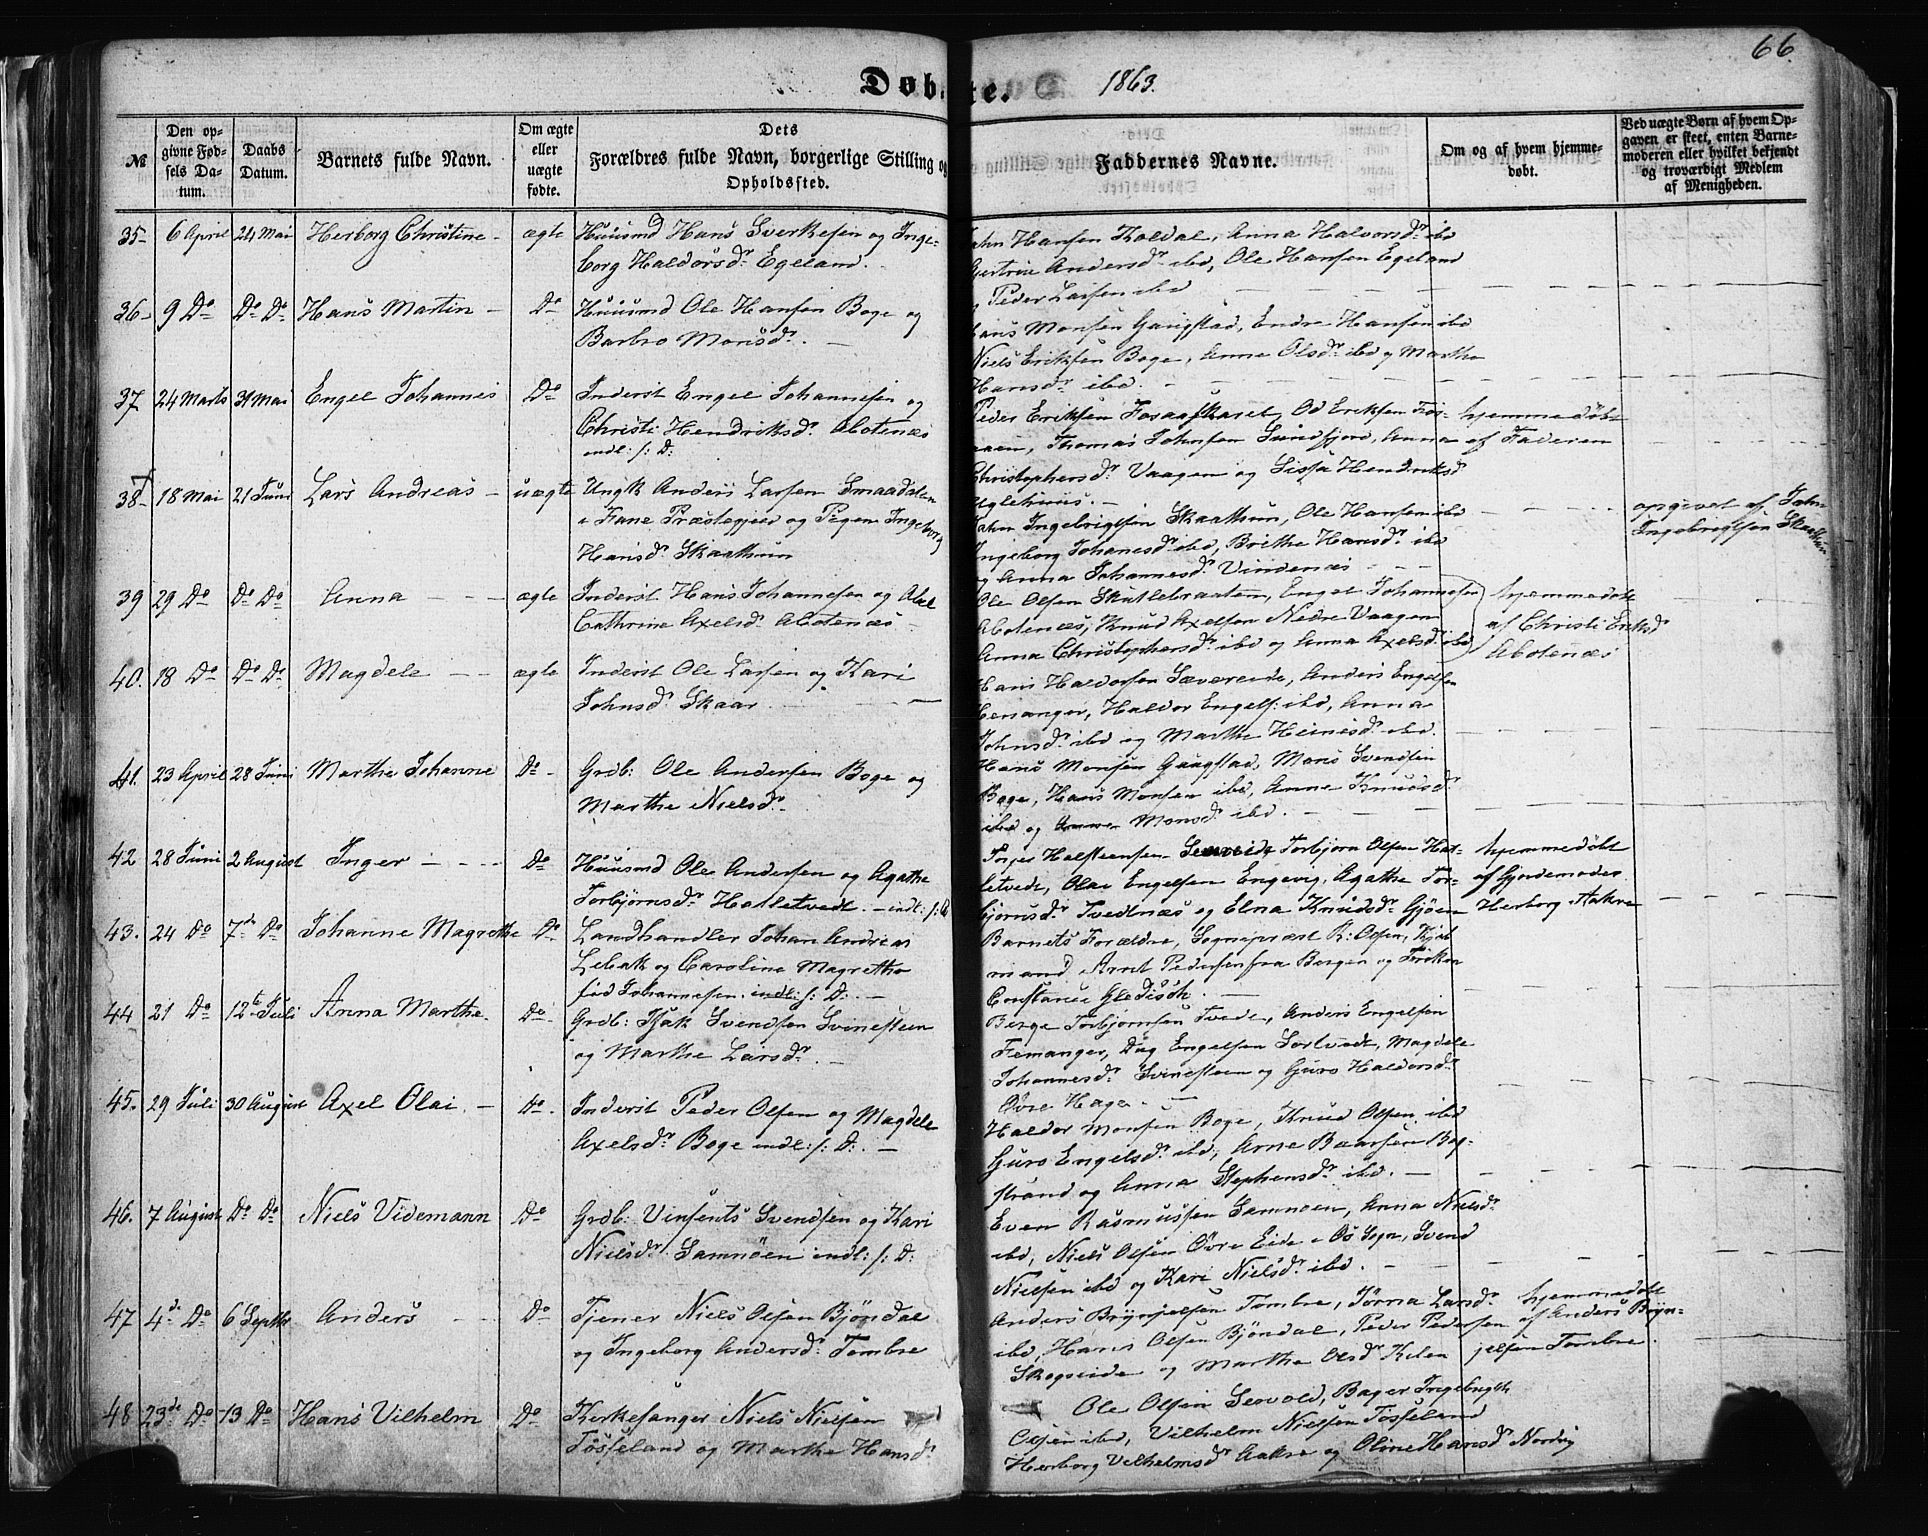 66.
Døbte. 1863.
№
Den opgivne Fødsels Datum.
Daabs Datum.
Barnets fulde Navn.
Om ægte eller uægte fødte.
Dets Forældres fulde Navn, borgerlige Stilling og Opholdssted.
Faddernes Navne.
Om og af hvem hjemmedøbt.
Ved uægte Børn af hvem Opgaven er skeet, enten Barnemoderen eller hvilket bekjendt og troværdigt Medlem af Menigheden.
35 6 April 24 Mai Herborg Christine ægte Huusmd Hans Sverkesen og Inge-
borg Haldorsdr Egeland.
John Hansen Koldal, Anna Halvorsdr ibd
Gjertrine Andersdr ibd, Ole Hansen Egeland
Peder Larsen ibd
36 9 Do Do Do Hans Martin Do Huusmd Ole Hansen Boge og
Barbro Monsdr.
Hans Monsen Gaugstad, Endre Hansen ibd
Niels Eriksen Boge, Anne Olsdr ibd og Marthe
Hansdr ibd.
37 24 Marts 31 Mai Engel Johannes Do Inderst Engel Johannesen og
Christi Hendriksdr Abotenæs
indl: s: D:
Peder Eriksen Fosaaskaret, Od Eriksen Fos-
aaen, Thomas Johnsen Sundfjord, Anna
Christophersdr Vaagen og Sissa Hendriksdr
Uglehuus.
hjemmedøbt
af Faderen
38 18 Mai 21 Juni Lars Andreas uægte Ungk Anders Larsen Smaadalen
i Fane Præstegjeld og Pigen Ingeborg
Hansdr Skaathun
John Ingebrigtsen Skaathun, Ole Hansen ibd
Ingeborg Johanesdr ibd, Brithe Hansdr ibd
og Anna Johannesdr Vindenæs
opgivet af John
Ingebrigtsen Skaathun
39 29 Do Do Do Anna ægte Inderst Hans Johannesen og Abel
Cathrine Axelsdr Abotenæs
Ole Olsen Skutlebraaten, Engel Johannesen
Abotenæs, Knud Axelsen Nedre Vaagen
Anna Christophersdr ibd og Anna Axelsdr ibd
hjemmedøbt
af Christi Eriksd
Abotenæs
40. 18 Do Do Do Magdele ægte Inderst Ole Larsen og Kari
Johnsdr Skaar
Hans Haldorsen Sævereide, Anders Engelsen
Henanger, Haldor Engels: ibd, Anna
Johnsdr ibd og Marthe Heinesdr ibd.
41. 23 April 28 Juni Marthe Johanne Do Grdb: Ole Andersen Boge og
Marthe Nielsdr.
Hans Monsen Gaugstad, Mons Svendsen
Boge, Hans Monsen ibd, Anne Knudsdr
ibd og Monsdr ibd.
42 28 Juni 2 August Inger Do Huusmd Ole Andersen og Agathe
Torbjørnsdr Hatletvedt. indl: s:
Torges Halsteensen Torbjørn Olsen Hat-
letvedt, Olai Engelsen Engevig, Agathe Tor-
bjørnsdr Tvedtnæs og Elna Knudsdr Gjøen
hjemmedøbt
af Gjordemoder
Herborg Aakre
43. 24 Do 7de Do Johanne Magrethe Do Landhandler Johan Andreas
Lebak og Caroline Magrethe
fød Johannesen. indl: s: D:
Barnets Forældre, Sognepræst R: Olsen, Kjøb
mand Arnt Pedersen fra Bergen og Frøken
Constance Gleditsch.
44 21 Do 12te Juli Anna Marthe Do Grdb: Isak Svendsen Svinesteen
og Marthe Larsdr.
Berge Torbjørnsen Tvede, Anders Engelsen
Femanger, Dag Engelsen Sortvedt, Magdele
Johannesdr Svinesteen og Guro Haldorsdr
Øvre Hage.
45. 29 Juli 30 August Axel Olai Do Inderst Peder Olsen og Magdele
Axelsdr Boge indl: s: D:
Haldor Monsen Boge, Knud Olsen ibd
Guro Engelsdr ibd, Arne Baarsen Bog-
strand og Anna Stephensdr ibd.
46. 7 August Do Do Niels Videmann Do Grdb: Vinsents Svendsen og Kari
Nielsdr Samnøen indl: s: D:
Even Rasmussen Samnøen, Anna Nielsdr
ibd, Niels Olsen Øvre Eide i Os Sogn, Svend
Nielsen ibd og Kari Nielsdr ibd.
47 4de Do 6 Septbr Anders Do Tjener Niels Olsen Bjøndal
og Ingeborg Andersdr Tombre
Anders Brynjelsen Tombre, Jørna Larsdr
ibd, Hans Olsen Bjøndal, Peder Pedersen
Skogseide og Marthe Olsdr Kilen
hjemmedøbt
af Anders Bryn-
jelsen Tombre.
48 23de Do 13 Do Hans Vilhelm Do Kirkesanger Niels Nielsen
Tøsseland og Marthe Hansdr
Ole Olsen Sevold, Bager Ingebrigt
Olsen ibd, Vilhelm Nielsen Tøsseland
Herborg Vilhelmsdr Aakre og Oline Hansdr Nordvig